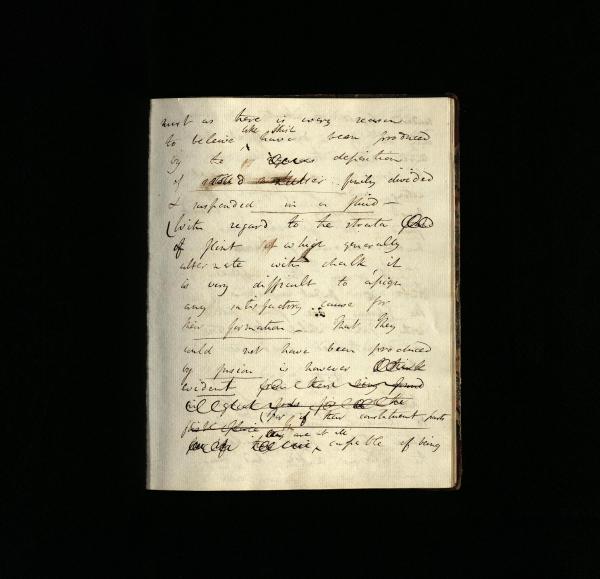 must as there is every reason
like this
to beleive have been produced
by the deposition
of finely divided
& suspended in a fluid –
With regard to the strata
of flint which generally
alternate with chalk, it
is very difficult to assign
any satisfactory cause for
their formation – That they
could not have been produced
by fusion is however
evident
for if their constituent parts
they are at all
capable of being